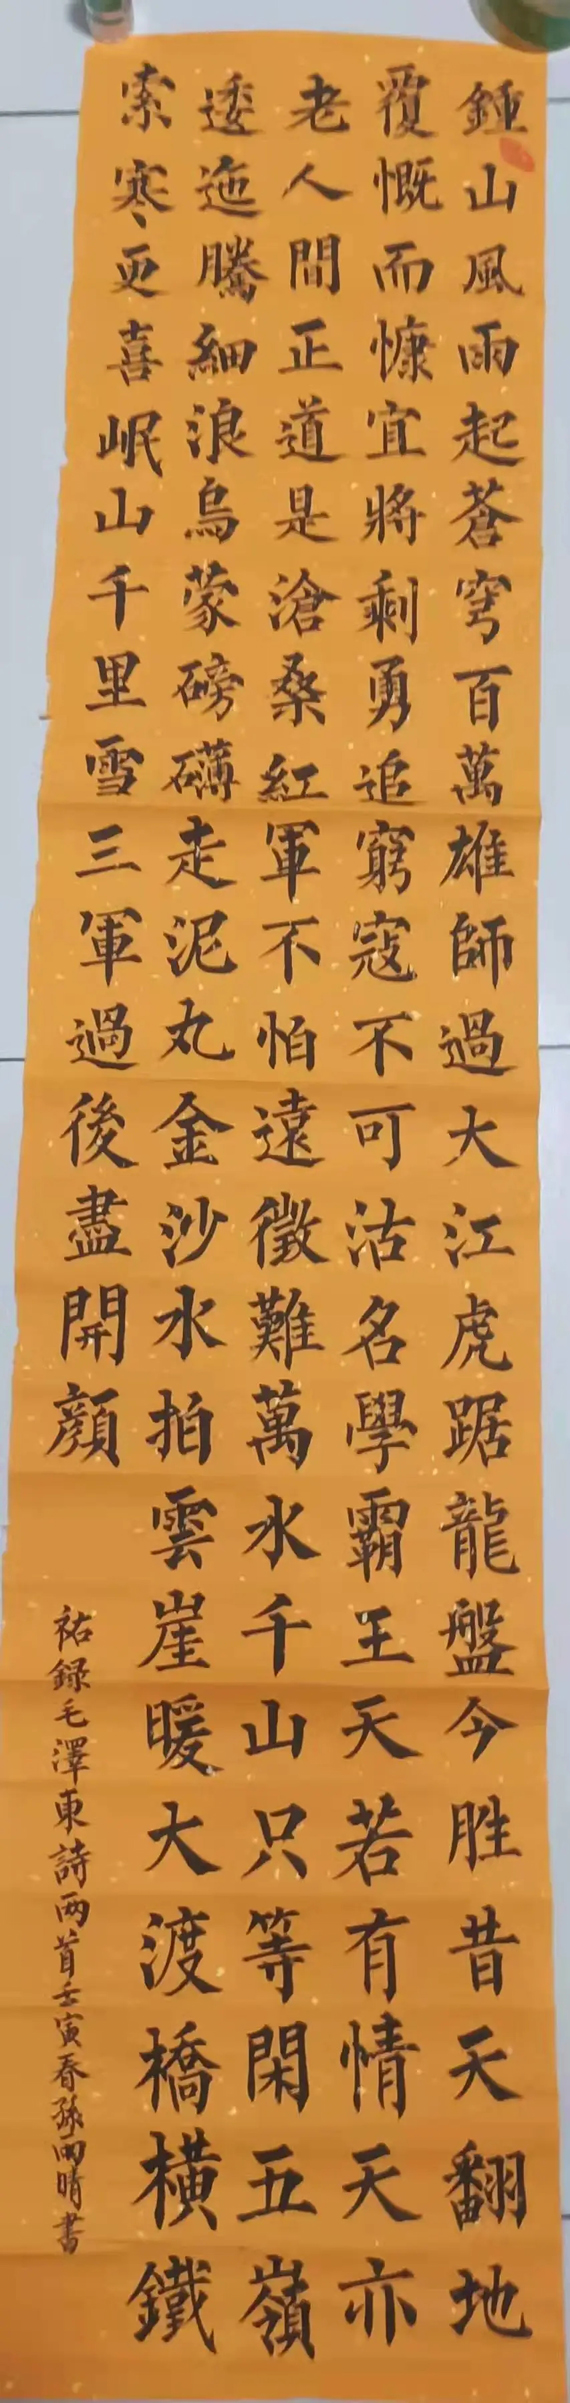 鍾山風雨起蒼穹百萬雄師過大江虎踞龍盤今胜昔天翻地
覆慨而慷宜將剩勇追窮寇不可沽名學霸王天若有情天亦
老人間正道是滄桑紅軍不怕遠徵難萬水千山只等閑五嶺
逶迤騰細浪烏蒙磅礴走泥丸金沙水拍雲崖暖大渡橋橫鐵
索寒〻更喜岷山千里雪三軍過後盡開顏
祐録毛澤東詩两首壬寅春孫雨晴書